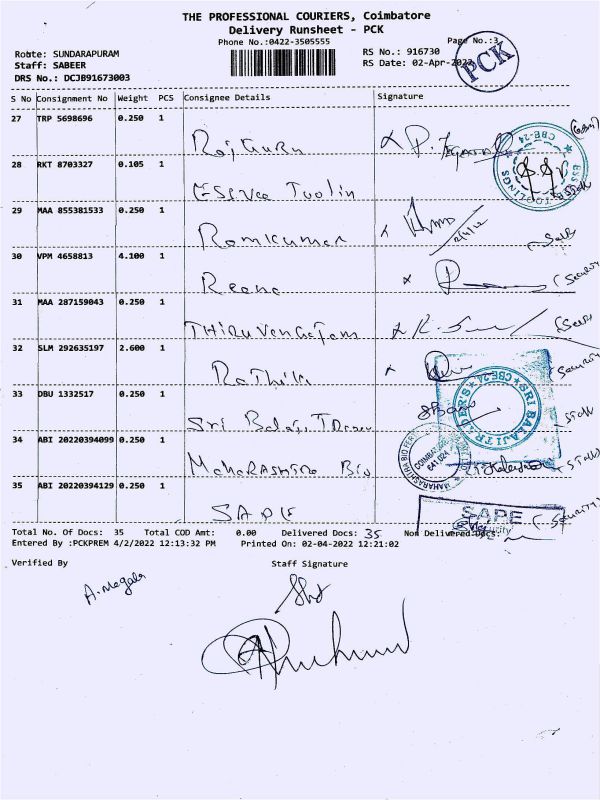 THE PROFESSIONAL COURIERS, Coimbatore
Delivery Runsheet - PCK
Phone No.:0422-3505555
Page No.:3
PCK
Route: SUNDARAPURAM
Staff: SABEER
DRS No.: DCJB91673003
RS No.: 916730
RS Date: 02-Apr-2022
S No Consignment No Weight PCS Consignee Details Signature
27 TRP 5698696 0.250 1
Rajguru
28 RKT 8703327 0.105 1
CBE-24
Essvee Toolin
29 MAA 855381533 0.250 1
Ramkumar
2/4/22
30 VPM 4658813 4.100 1
Reena
(Security
31 MAA 287159043 0.250 1
Thiruvengatam
32 SLM 292635197 2.600 1
(Security
33 DBU 1332517 0.250 1
Sri Balaji Traders
SRI BALAJI TRADERS
CBE-24
34 ABI 20220394099 0.250 1
Maharashtra Bio
MAHARASHTRA BIO FERT
COIMBATORE
641 024
35 ABI 20220394129 0.250 1
SAPE
SAPE
Security
(Security)
Total No. Of Docs: 35 Total COD Amt: 0.00 Delivered Docs: 35 Non Delivered Docs:
Entered By :PCKPREM 4/2/2022 12:13:32 PM Printed On: 02-04-2022 12:21:02
Verified By Staff Signature
A. Megala